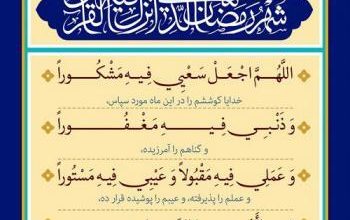 شَهْرُ رَمَضَانَ الَّذِي أُنْزِلَ فِيهِ الْقُرْآنُ
اَللَّهُمَّ اجْعَلْ سَعْيِي فِيهِ مَشْكُوراً
خدایا کوششم را در این ماه مورد سپاس،
وَ ذَنْبِي فِيهِ مَغْفُوراً
و گناهم را آمرزیده،
وَ عَمَلِي فِيهِ مَقْبُولاً وَ عَيْبِي فِيهِ مَسْتُوراً
و عملم را پذیرفته، و عیبم را پوشیده قرار ده،